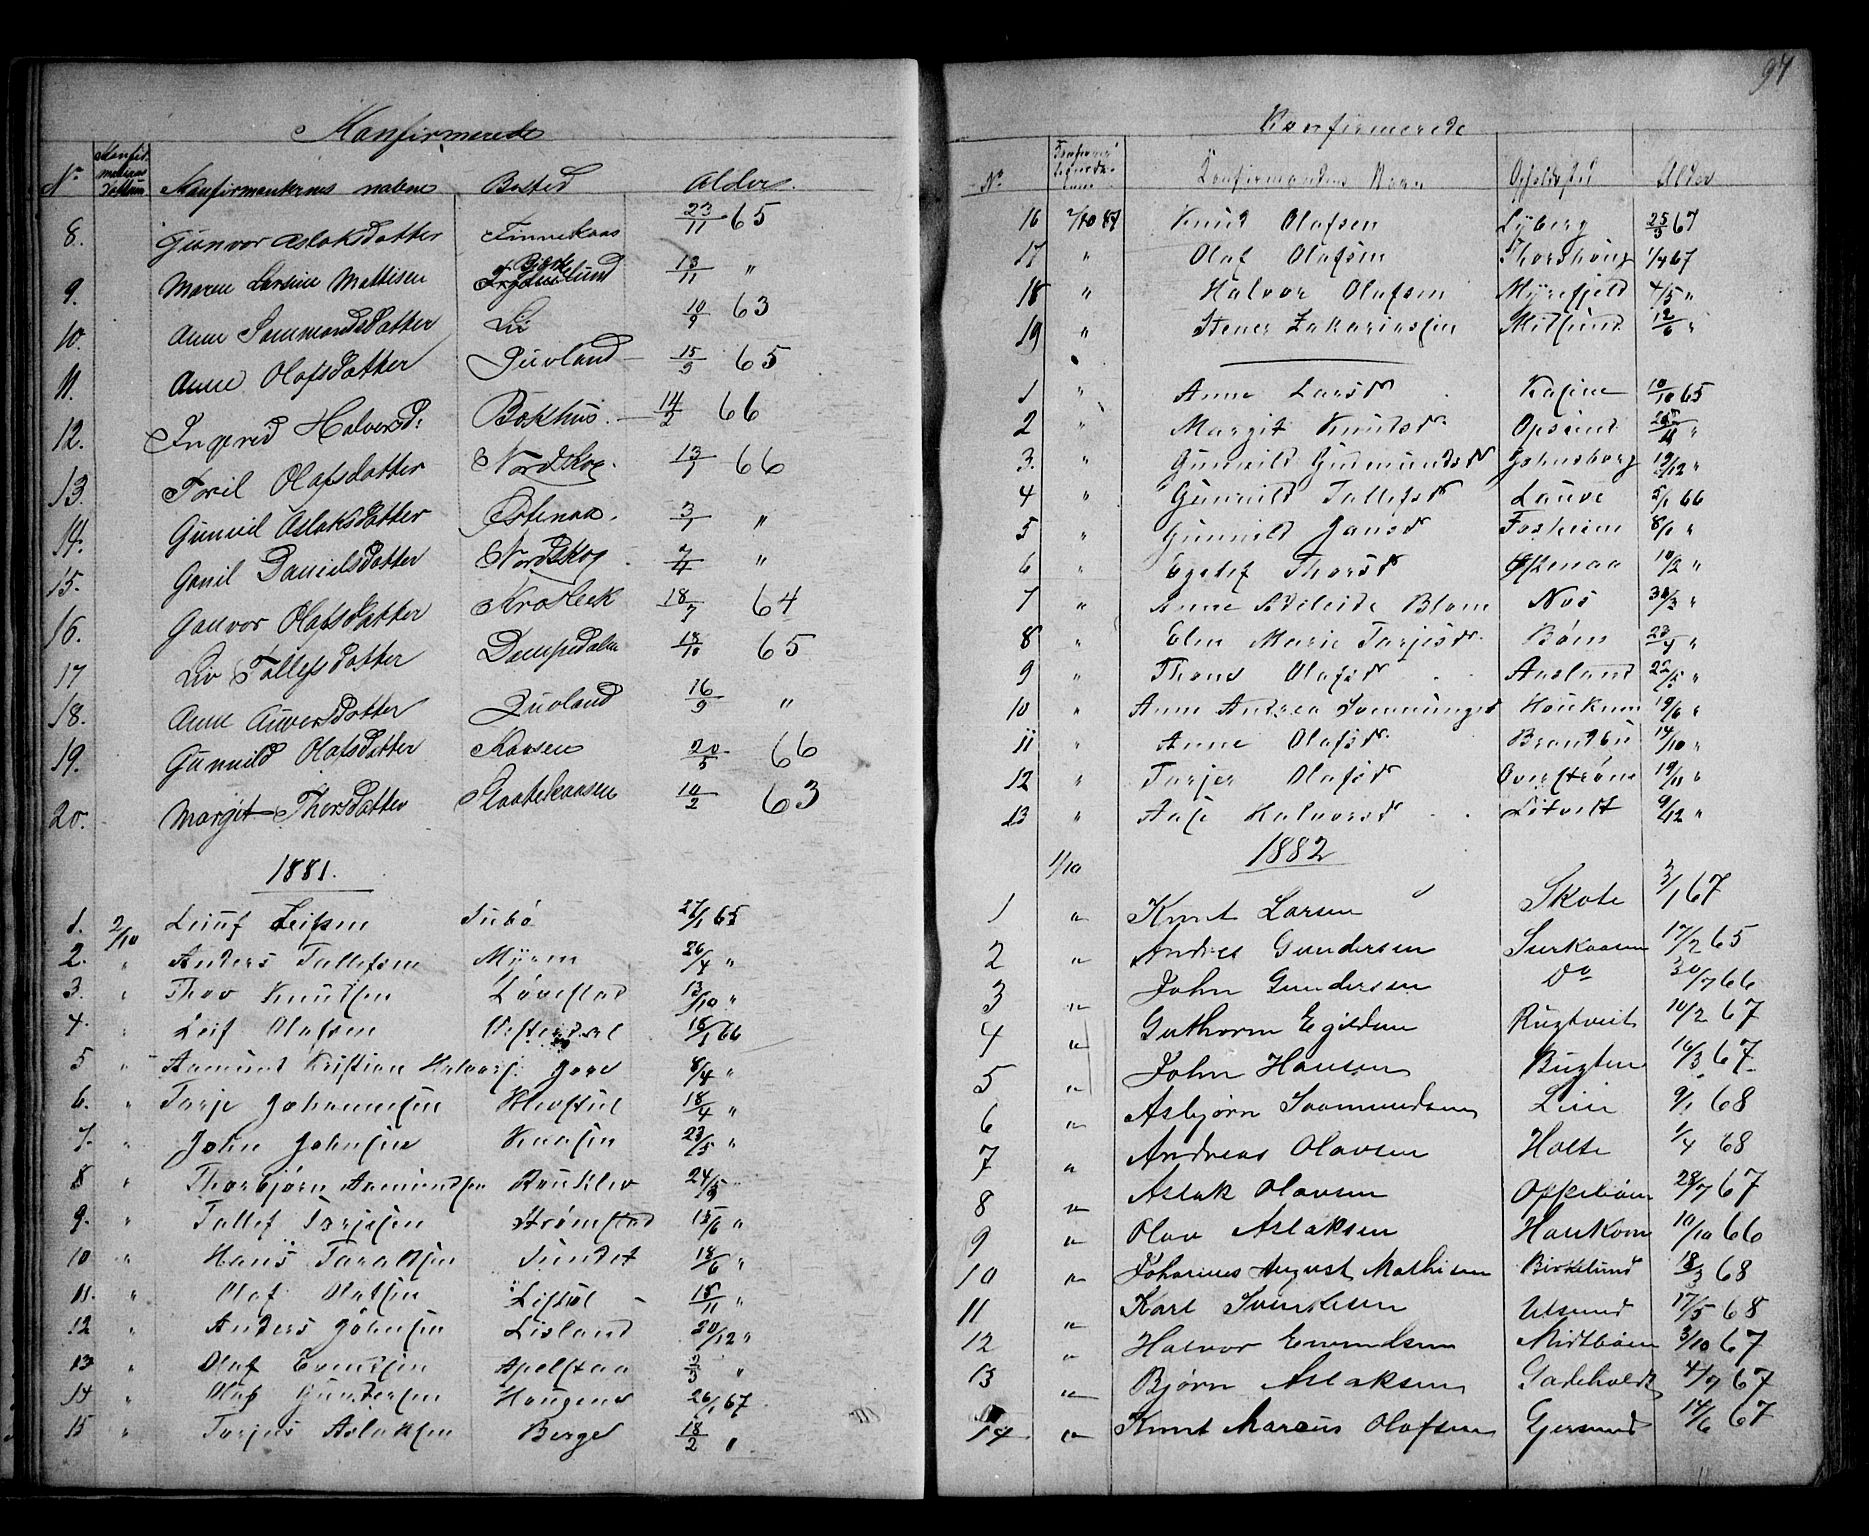 Konfirmerede
No Konfirmations Datum Konfirmanternes navne Bosted Alder
8. Gunvor Aslaksdatter Finnekaas 23/11 65
9. Maren Larsine Mattisen Birkelund 13/11 "
10. Anne Sammondsdatter Lii 10/9 63
11. Anne Olafsdatter Juvland 15/9 65
12. Ingerid Halvorsd: Bakhus 14/2 66
13. Toril Olafsdatter Nordskog. 13/1 66
14. Gunvil Aslaksdatter Østenaa. 3/1 "
15. Gonil Danielsdatter Nordskog 7/4 "
16. Gonvor Olafsdatter Krosleck 18/7 64
17 Liv Tollefsdatter Dampedalen 18/10 65
18. Anne Auversdatter Juvland 16/9 "
19. Gunvild Olafsdatter Kaasen 20/5 66
20. Margit Thorsdatter Slaattekaasen 10/2 63
1881.
1. 2/10 Leiuf Leifsen Tubø 27/1 65
2. " Anders Tallefsen Myren 26/4 "
3. " Thov Knutsen Løvestad 13/10 "
4. " Leif Olafsen Vesterdal 18/1 66
5 " Aamunt Kristian Halvors: Jore 8/4 "
6. " Tarje Johannesen Kleøftul 18/4 "
7. " John Johnsen Kaasen 23/5 "
8 " Thorbjørn Aamundsen Bruklev 24/5
9. " Tallef Tarjesen Strømstad 15/6 "
10 " Hans Taraldsen Sundet 18/6 "
11. " Olaf Olafsen Listøl 18/11 "
12 " Anders Johnsen Lisland 20/12 "
13 " Olaf Evensen Apelstaa 2/3 "
14 " Olaf Gundersen Haugene 26/1 67
15 " Tarjus Aslaksen Berge 18/2 "
97
Konfirmerede
No. Konfirmandens Navn Opholdssted Alder
16 2/10 81 Knud Olafsen Lyberg 25/3 67
17 " Olaf Olafsen Thorshaug 1/4 67
18 " Halvor Olafsen Myrefjeld 4/5 "
19 " Stener Zakariassen Mitsund 12/6 "
1 " Anne Larsdr Kasine 10/10 65
2 " Margit Knutsdr Opsund 25/11 "
3. " Gunvild Gudmundsdr Johnsborg 19/12 "
4 " Gunvild Tallefsdr Lauve 5/1 66
5 " Gunvild Jansdr Fosheim 8/1 "
6 " Egelef Thorsdr Østenaa 10/2 "
7 " Anne Adeleide Blom Nes 30/3 "
8 " Elen Marie Tarjesdr. Bøen 23/4 "
9 " Thone Olafsdr Aasland 22/5 "
10 " Anne Andrea Svenningsd Haukom 19/6 "
11 " Anne Olafsdr Brantbu 14/10 "
12 " Tarjer Olafsdr Overstrøm 19/11 "
13 " Aase Halvorsdr Litveit 9/12 "
1882
1/10
1 " Knut Larsen Skote 3/1 67
2 " Andres Gundersen Surkaasen 17/2 65
3 " John Gundersen Do 30/7 66
4 " Guthorm Egildsen Rugtveit 10/2 67
5 " John Hansen Bugten 16/3 67
6 " Asbjørn Saamundsen Leiie 9/1 68
7 " Andreas Olavsen Holte 1/4 68
8 " Aslak Olavsen Oppebøen 28/7 67
9 " Olav Aslaksen Haukom 10/10 66
10 " Johannes August Mathisen Birkelund 18/3 68
11 " Karl Svenkesen Utsund 17/5 68
12 " Halvor Emundsen Midtbøen 3/10 67
13 " Bjørn Aslaksen Gadeholdt 4/7 67
14 " Knut Marcus Olafsen Gjersund 14/6 67